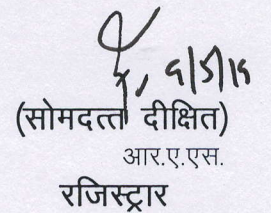 (सोमदत्त दीक्षित)
आर.ए.एस.
रजिस्ट्रार